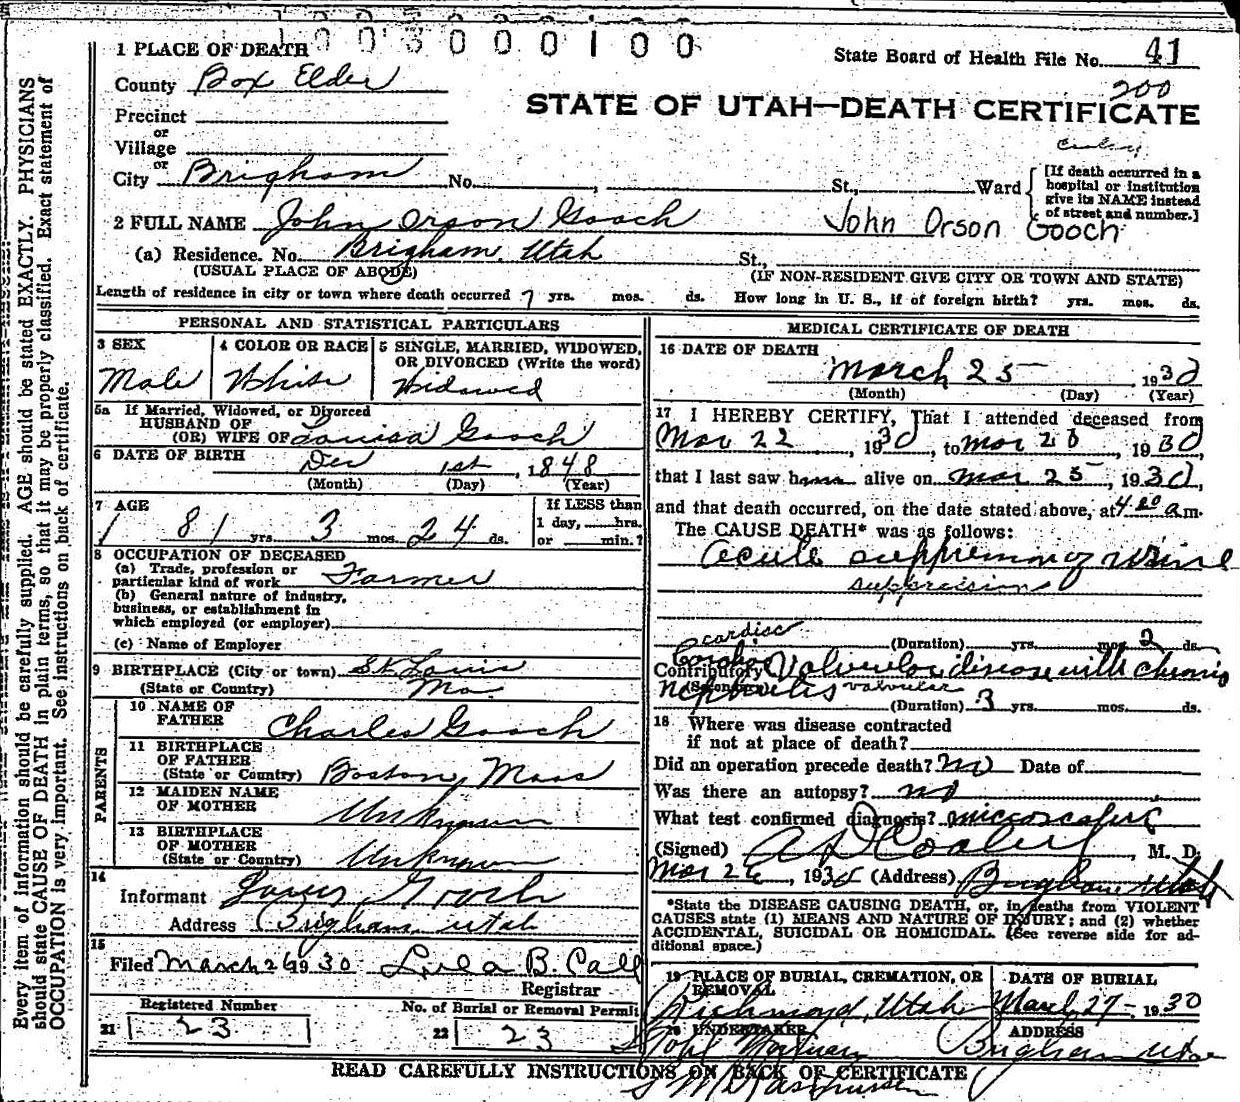 1003000100
1 PLACE OF DEATH
State Board of Health File No. 41
County Box Elder
200
STATE OF UTAH—DEATH CERTIFICATE
Precinct
or
Village
or
City Brigham No. , St., Ward
[If death occurred in a
hospital or institution
give its NAME instead
of street and number.]
2 FULL NAME John Orson Gooch John Orson Gooch
(a) Residence. No. Brigham, Utah St.,
(USUAL PLACE OF ABODE) (IF NON-RESIDENT GIVE CITY OR TOWN AND STATE)
Length of residence in city or town where death occurred 7 yrs. mos. ds. How long in U. S., if of foreign birth? yrs. mos. ds.
PERSONAL AND STATISTICAL PARTICULARS
3 SEX
Male
4 COLOR OR RACE
White
5 SINGLE, MARRIED, WIDOWED,
OR DIVORCED (Write the word)
Widowed
5a If Married, Widowed, or Divorced
HUSBAND OF
(OR) WIFE OF Louisa Gooch
6 DATE OF BIRTH Dec 1st, 1848
(Month) (Day) (Year)
7 AGE
81 yrs. 3 mos. 24 ds.
If LESS than
1 day, hrs.
or min.?
8 OCCUPATION OF DECEASED
(a) Trade, profession or
particular kind of work Farmer
(b) General nature of industry,
business, or establishment in
which employed (or employer)
(c) Name of Employer
9 BIRTHPLACE (City or town) St. Louis
(State or Country) Mo.
PARENTS
10 NAME OF
FATHER Charles Gooch
11 BIRTHPLACE
OF FATHER
(State or Country) Boston, Mass
12 MAIDEN NAME
OF MOTHER Unknown
13 BIRTHPLACE
OF MOTHER
(State or Country) Unknown
14
Informant Gooch
Address Brigham, Utah
15
Filed March 26 1930 Lula B. Call
Registrar
Registered Number
21 23
No. of Burial or Removal Permit
22 23
MEDICAL CERTIFICATE OF DEATH
16 DATE OF DEATH
March 25 1930
(Month) (Day) (Year)
17 I HEREBY CERTIFY, That I attended deceased from
Mar 22, 1930, to Mar , 1930,
that I last saw h alive on Mar 25, 1930,
and that death occurred, on the date stated above, at 4 a m.
The CAUSE DEATH* was as follows:
Acute suppression of urine
suppression
(Duration) yrs. mos. 2 ds.
cardiac
Contributory Valvular disease with chronic
(Secondary)
nephritis valvular
(Duration) 3 yrs. mos. ds.
18 Where was disease contracted
if not at place of death?
Did an operation precede death? no Date of
Was there an autopsy? no
What test confirmed diagnosis?
(Signed) A D Cooley, M. D.
Mar 26, 1930 (Address) Brigham Utah
*State the DISEASE CAUSING DEATH, or, in deaths from VIOLENT
CAUSES state (1) MEANS AND NATURE OF INJURY; and (2) whether
ACCIDENTAL, SUICIDAL OR HOMICIDAL. (See reverse side for ad-
ditional space.)
19 PLACE OF BURIAL, CREMATION, OR
REMOVAL
Richmond, Utah
DATE OF BURIAL
March 27, 1930
20 UNDERTAKER
ADDRESS
Brigham Utah
READ CAREFULLY INSTRUCTIONS ON BACK OF CERTIFICATE
Every item of information should be carefully supplied. AGE should be stated EXACTLY. PHYSICIANS
should state CAUSE OF DEATH in plain terms, so that it may be properly classified. Exact statement of
OCCUPATION is very important. See instructions on back of certificate.